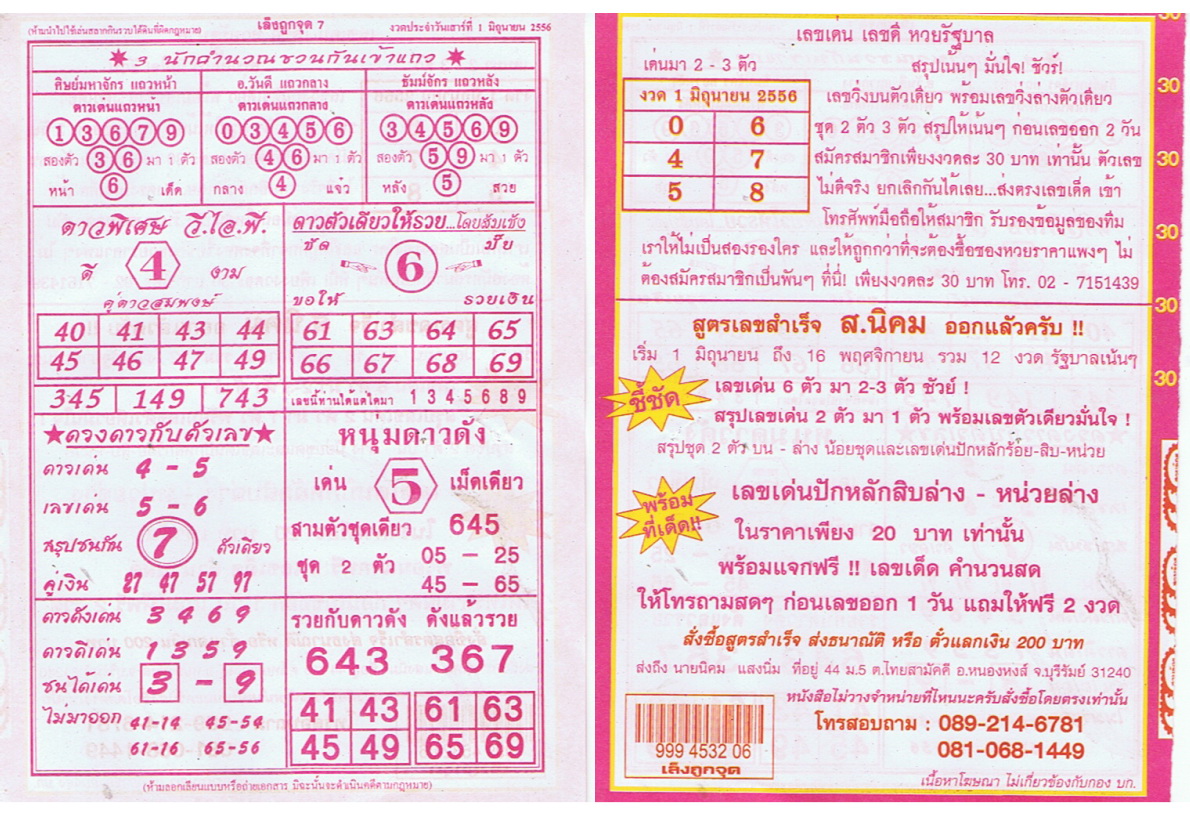 (ห้ามนำไปใช้เล่นสลากกินรวบได้ดีบที่ผิดกฎหมาย) เล็งถูกจุด 7 งวดประจำวันเสาร์ที่ 1 มิถุนายน 2556
3 นักคำนวณชวนกันเข้าแถว
ศิษย์มหาจักร แถวหน้า อ.วันดี แถวกลาง ธัมม์จักร แถวหลัง
ดาวเด่นแถวหน้า ดาวเด่นแถวกลาง ดาวเด่นแถวหลัง
1 3 6 7 9 0 3 4 5 6 3 4 5 6 9
สองตัว 3 6 มา 1 ตัว สองตัว 4 6 มา 1 ตัว สองตัว 5 9 มา 1 ตัว
หน้า 6 เด็ด กลาง 4 แจ๋ว หลัง 5 สวย
ดาวพิเศษ วี.ไอ.พี.
ดี 4 งาม
คู่ดาวสมพงษ์
40 41 43 44
45 46 47 49
345 149 743
ดาวตัวเดียวให้รวย...โดยสัมแช้ง
ชัด 6 ปั๊ย
ขอให้ รวยเงิน
61 63 64 65
66 67 68 69
เลขนี้ท่านได้แต่ใดมา 1 3 4 5 6 8 9
★ดวงดาวกับตัวเลข★
ดาวเด่น 4 - 5
เลขเด่น 5 - 6
สรุปชนกัน 7 ตัวเดียว
คู่เงิน 27 47 57 97
ดาวดังเด่น 3 4 6 9
ดาวดีเด่น 1 3 5 9
ชนได้เด่น 3 - 9
ไม่มาออก 41-14 45-54
61-16 65-56
หนุมดาวดัง
เด่น 5 เม็ดเดียว
สามตัวชุดเดียว 645
ชุด 2 ตัว 05 - 25
45 - 65
รวยกับดาวดัง ดังแล้วรวย
643 367
41 43 61 63
45 49 65 69
(ห้ามลอกเลียนแบบหรือถ่ายเอกสาร มิฉะนั้นจะดำเนินคดีตามกฎหมาย)
เลขเด่น เลขดี หวยรัฐบาล
เด่นมา 2 - 3 ตัว สรุปเน้นๆ มั่นใจ! ชัวร์!
งวด 1 มิถุนายน 2556
0 6
4 7
5 8
เลขวิ่งบนตัวเดียว พร้อมเลขวิ่งล่างตัวเดียว
ชุด 2 ตัว 3 ตัว สรุปให้เน้นๆ ก่อนเลขออก 2 วัน
สมัครสมาชิกเพียงงวดละ 30 บาท เท่านั้น ตัวเลข
ไม่ดีจริง ยกเลิกกันได้เลย...ส่งตรงเลขเด็ด เข้า
โทรศัพท์มือถือให้สมาชิก รับรองข้อมูลของทีม
เราให้ไม่เป็นสองรองใคร และให้ถูกกว่าที่จะต้องซื้อของหวยราคาแพงๆ ไม่
ต้องสมัครสมาชิกเป็นพันๆ ที่นี่! เพียงงวดละ 30 บาท โทร. 02 - 7151439
สูตรเลขสำเร็จ ส.นิคม ออกแล้วครับ !!
เริ่ม 1 มิถุนายน ถึง 16 พฤศจิกายน รวม 12 งวด รัฐบาลเน้นๆ
ชี้ชัด
เลขเด่น 6 ตัว มา 2-3 ตัว ชัวย์ !
สรุปเลขเด่น 2 ตัว มา 1 ตัว พร้อมเลขตัวเดียวมั่นใจ !
สรุปชุด 2 ตัว บน - ล่าง น้อยชุดและเลขเด่นปักหลักร้อย-สิบ-หน่วย
พร้อม
ที่เด็ด!!
เลขเด่นปักหลักสิบล่าง - หน่วยล่าง
ในราคาเพียง 20 บาท เท่านั้น
พร้อมแจกฟรี !! เลขเด็ด คำนวนสด
ให้โทรถามสดๆ ก่อนเลขออก 1 วัน แถมให้ฟรี 2 งวด
สั่งซื้อสูตรสำเร็จ ส่งธนาณัติ หรือ ตั๋วแลกเงิน 200 บาท
ส่งถึง นายนิคม แสงนิ่ม ที่อยู่ 44 ม.5 ต.ไทยสามัคคี อ.หนองหงส์ จ.บุรีรัมย์ 31240
หนังสือไม่วางจำหน่ายที่ไหนนะครับสั่งซื้อโดยตรงเท่านั้น
โทรสอบถาม : 089-214-6781
081-068-1449
999 4532 06
เล็งถูกจุด
เนื้อหาโฆษณา ไม่เกี่ยวข้องกับกอง บก.
30
30
30
30
30